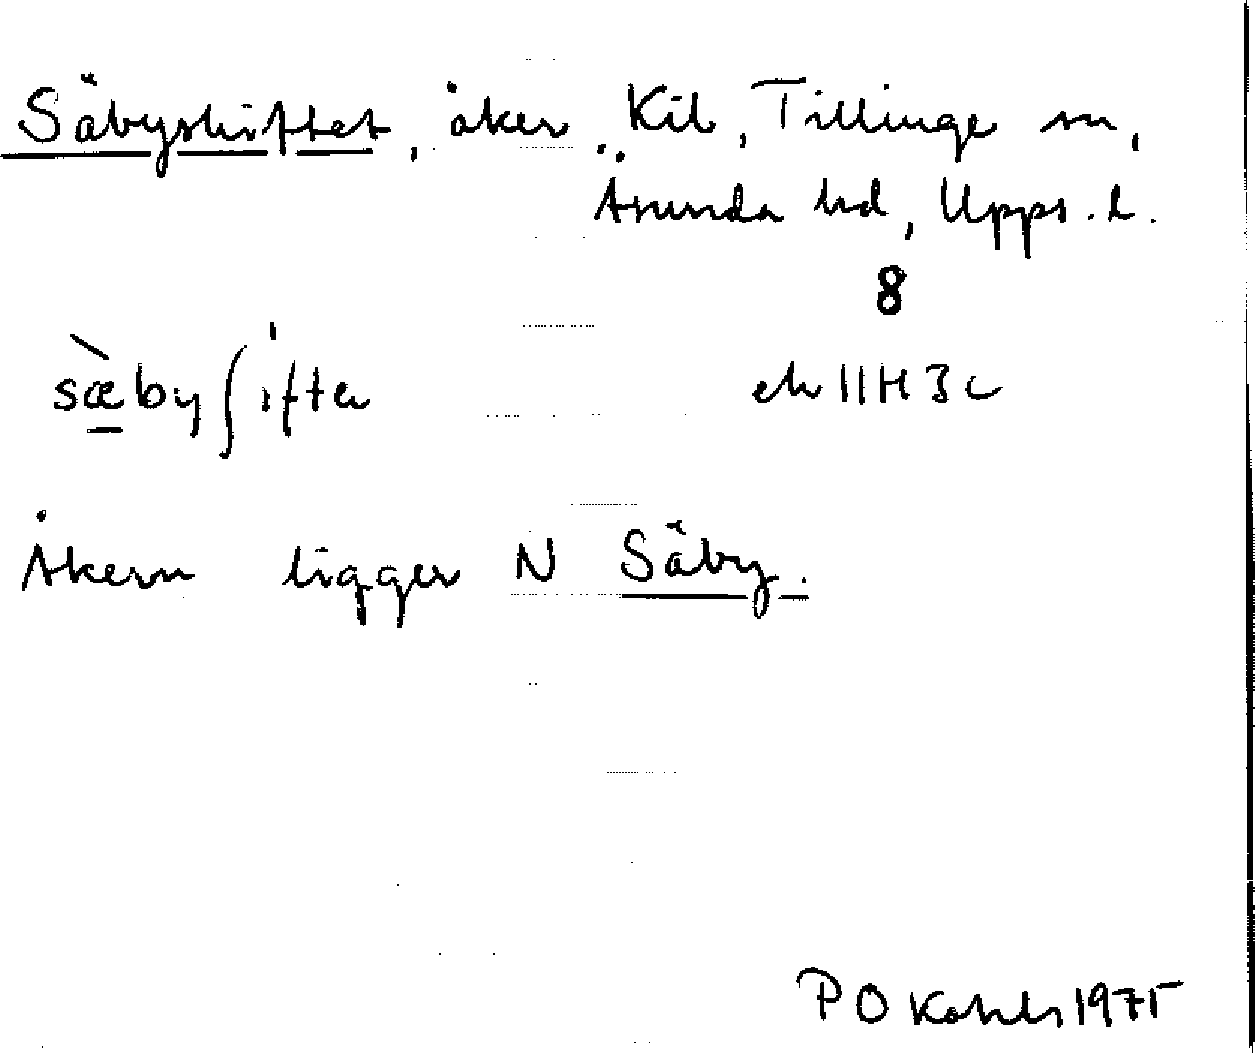 Säbyskiftet, åker, Kil, Tillinge sn,
Åsunda hd, Upps. l.
8
sæ̀byʃìftǝ ek 11H3c
Åkern ligger N Säby.
P O 1975